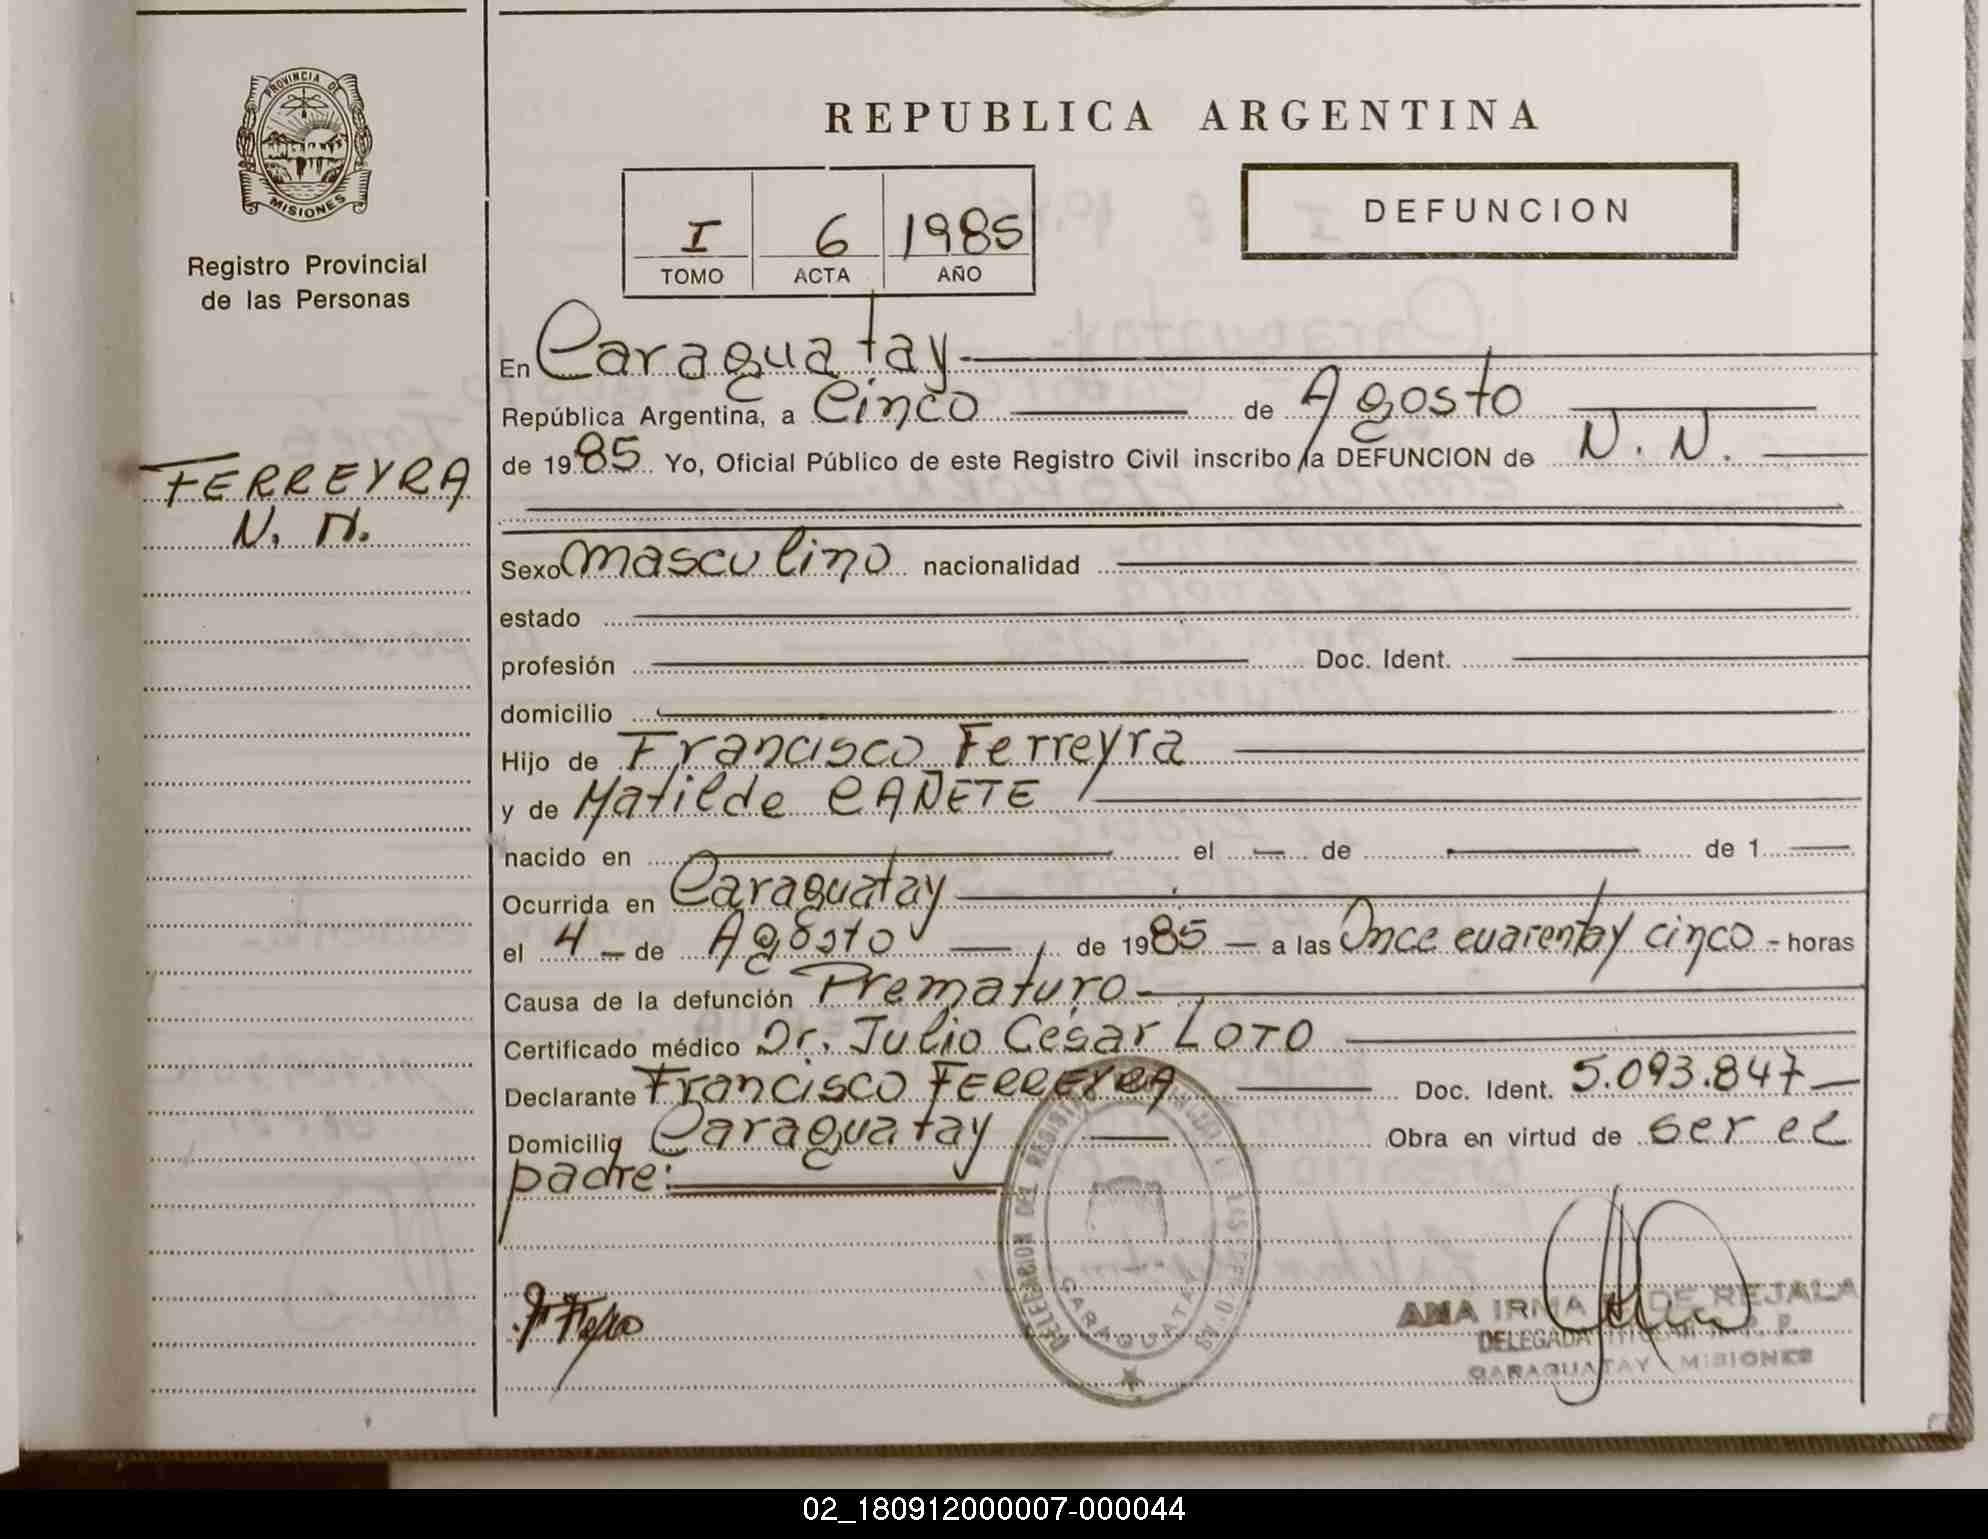 PROVINCIA DE
MISIONES
Registro Provincial
de las Personas
FERREYRA
N. N.
REPUBLICA ARGENTINA
I 6 1985
TOMO ACTA AÑO
DEFUNCION
En Caraguatay
República Argentina, a Cinco de Agosto
de 1985 Yo, Oficial Público de este Registro Civil inscribo la DEFUNCION de N. N.
Sexo masculino nacionalidad
estado
profesión Doc. Ident.
domicilio
Hijo de Francisco Ferreyra
y de Matilde CAÑETE
nacido en el de de 1
Ocurrida en Caraguatay
el 4 - de Agosto de 1985 - a las Once cuarentay cinco - horas
Causa de la defunción Prematuro -
Certificado médico Dr. Julio César LOTO
Declarante Francisco FERREYRA Doc. Ident. 5.093.847
Domicilio Caraguatay Obra en virtud de ser el
padre:
DELEGACION DEL
CARAGUATAY
ANA IRMA DE REJALA
DELEGADA TITULAR R. P. P.
CARAGUATAY MISIONES
02_180912000007-000044